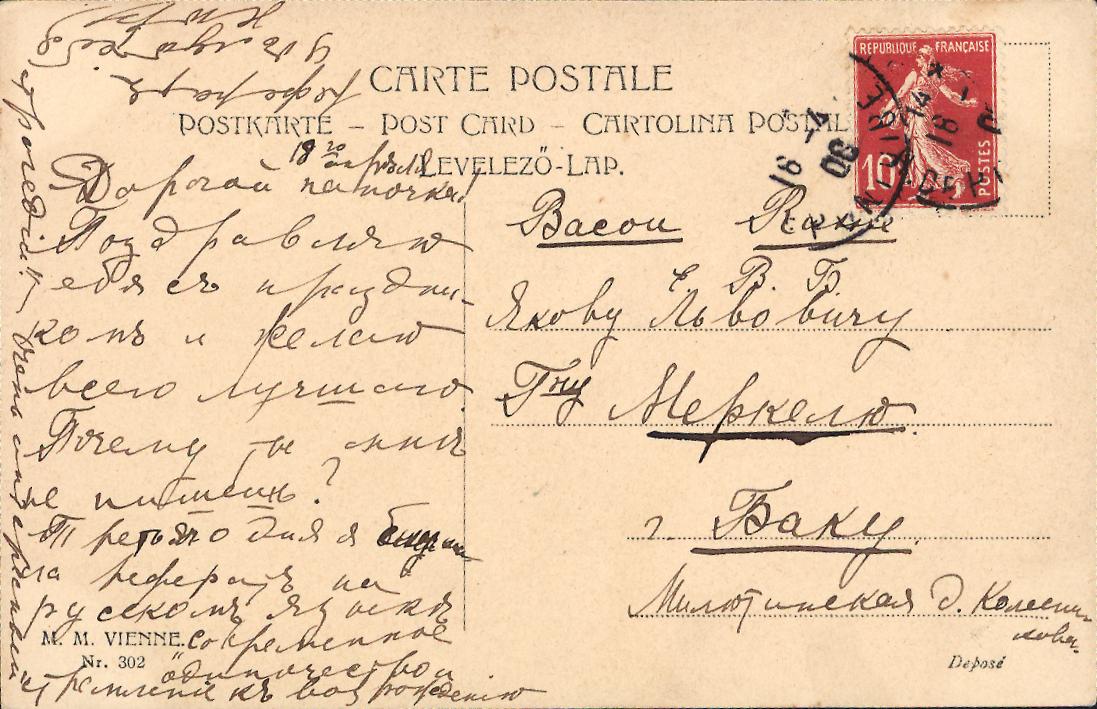 CARTE POSTALE
POSTKARTE – POST CARD – CARTOLINA POSTAL
LEVELEZŐ-LAP.
REPUBLIQUE FRANÇAISE
10
POSTES
16 -4
06
Дорогой папочка!
Поздравляю
тебя съ праздни-
комъ и желаю
всего лучшаго.
Почему ты мнѣ
не пишешь?
Третьяго дня я
ла рефератъ на
русскомъ языкѣ
Современное
одиночество и
стремленіе къ возрожденію
трагедіи".
Очень
Васои Rакие
Е. В. Б.
Якову Львовичу
Гну Меркелю
г. Баку.
Милютинская д. Колесни-
кова.
M. M. VIENNE.
Nr. 302
Deposé